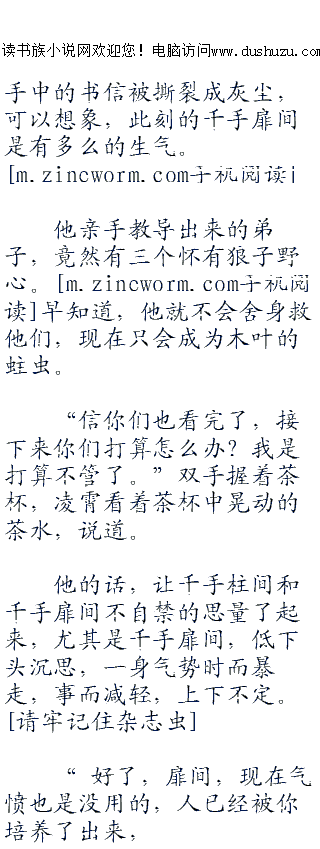 读书族小说网欢迎您！电脑访问www.dushuzu.com
手中的书信被撕裂成灰尘，
可以想象，此刻的千手扉间
是有多么的生气。
[m.zincworm.com手机阅读]
他亲手教导出来的弟
子，竟然有三个怀有狼子野
心。[m.zincworm.com手机阅
读]早知道，他就不会舍身救
他们，现在只会成为木叶的
蛀虫。
“信你们也看完了，接
下来你们打算怎么办？我是
打算不管了。”双手握着茶
杯，凌霄看着茶杯中晃动的
茶水，说道。
他的话，让千手柱间和
千手扉间不自禁的思量了起
来，尤其是千手扉间，低下
头沉思，一身气势时而暴
走，事而减轻，上下不定。
[请牢记住杂志虫]
“ 好了，扉间，现在气
愤也是没用的，人已经被你
培养了出来，